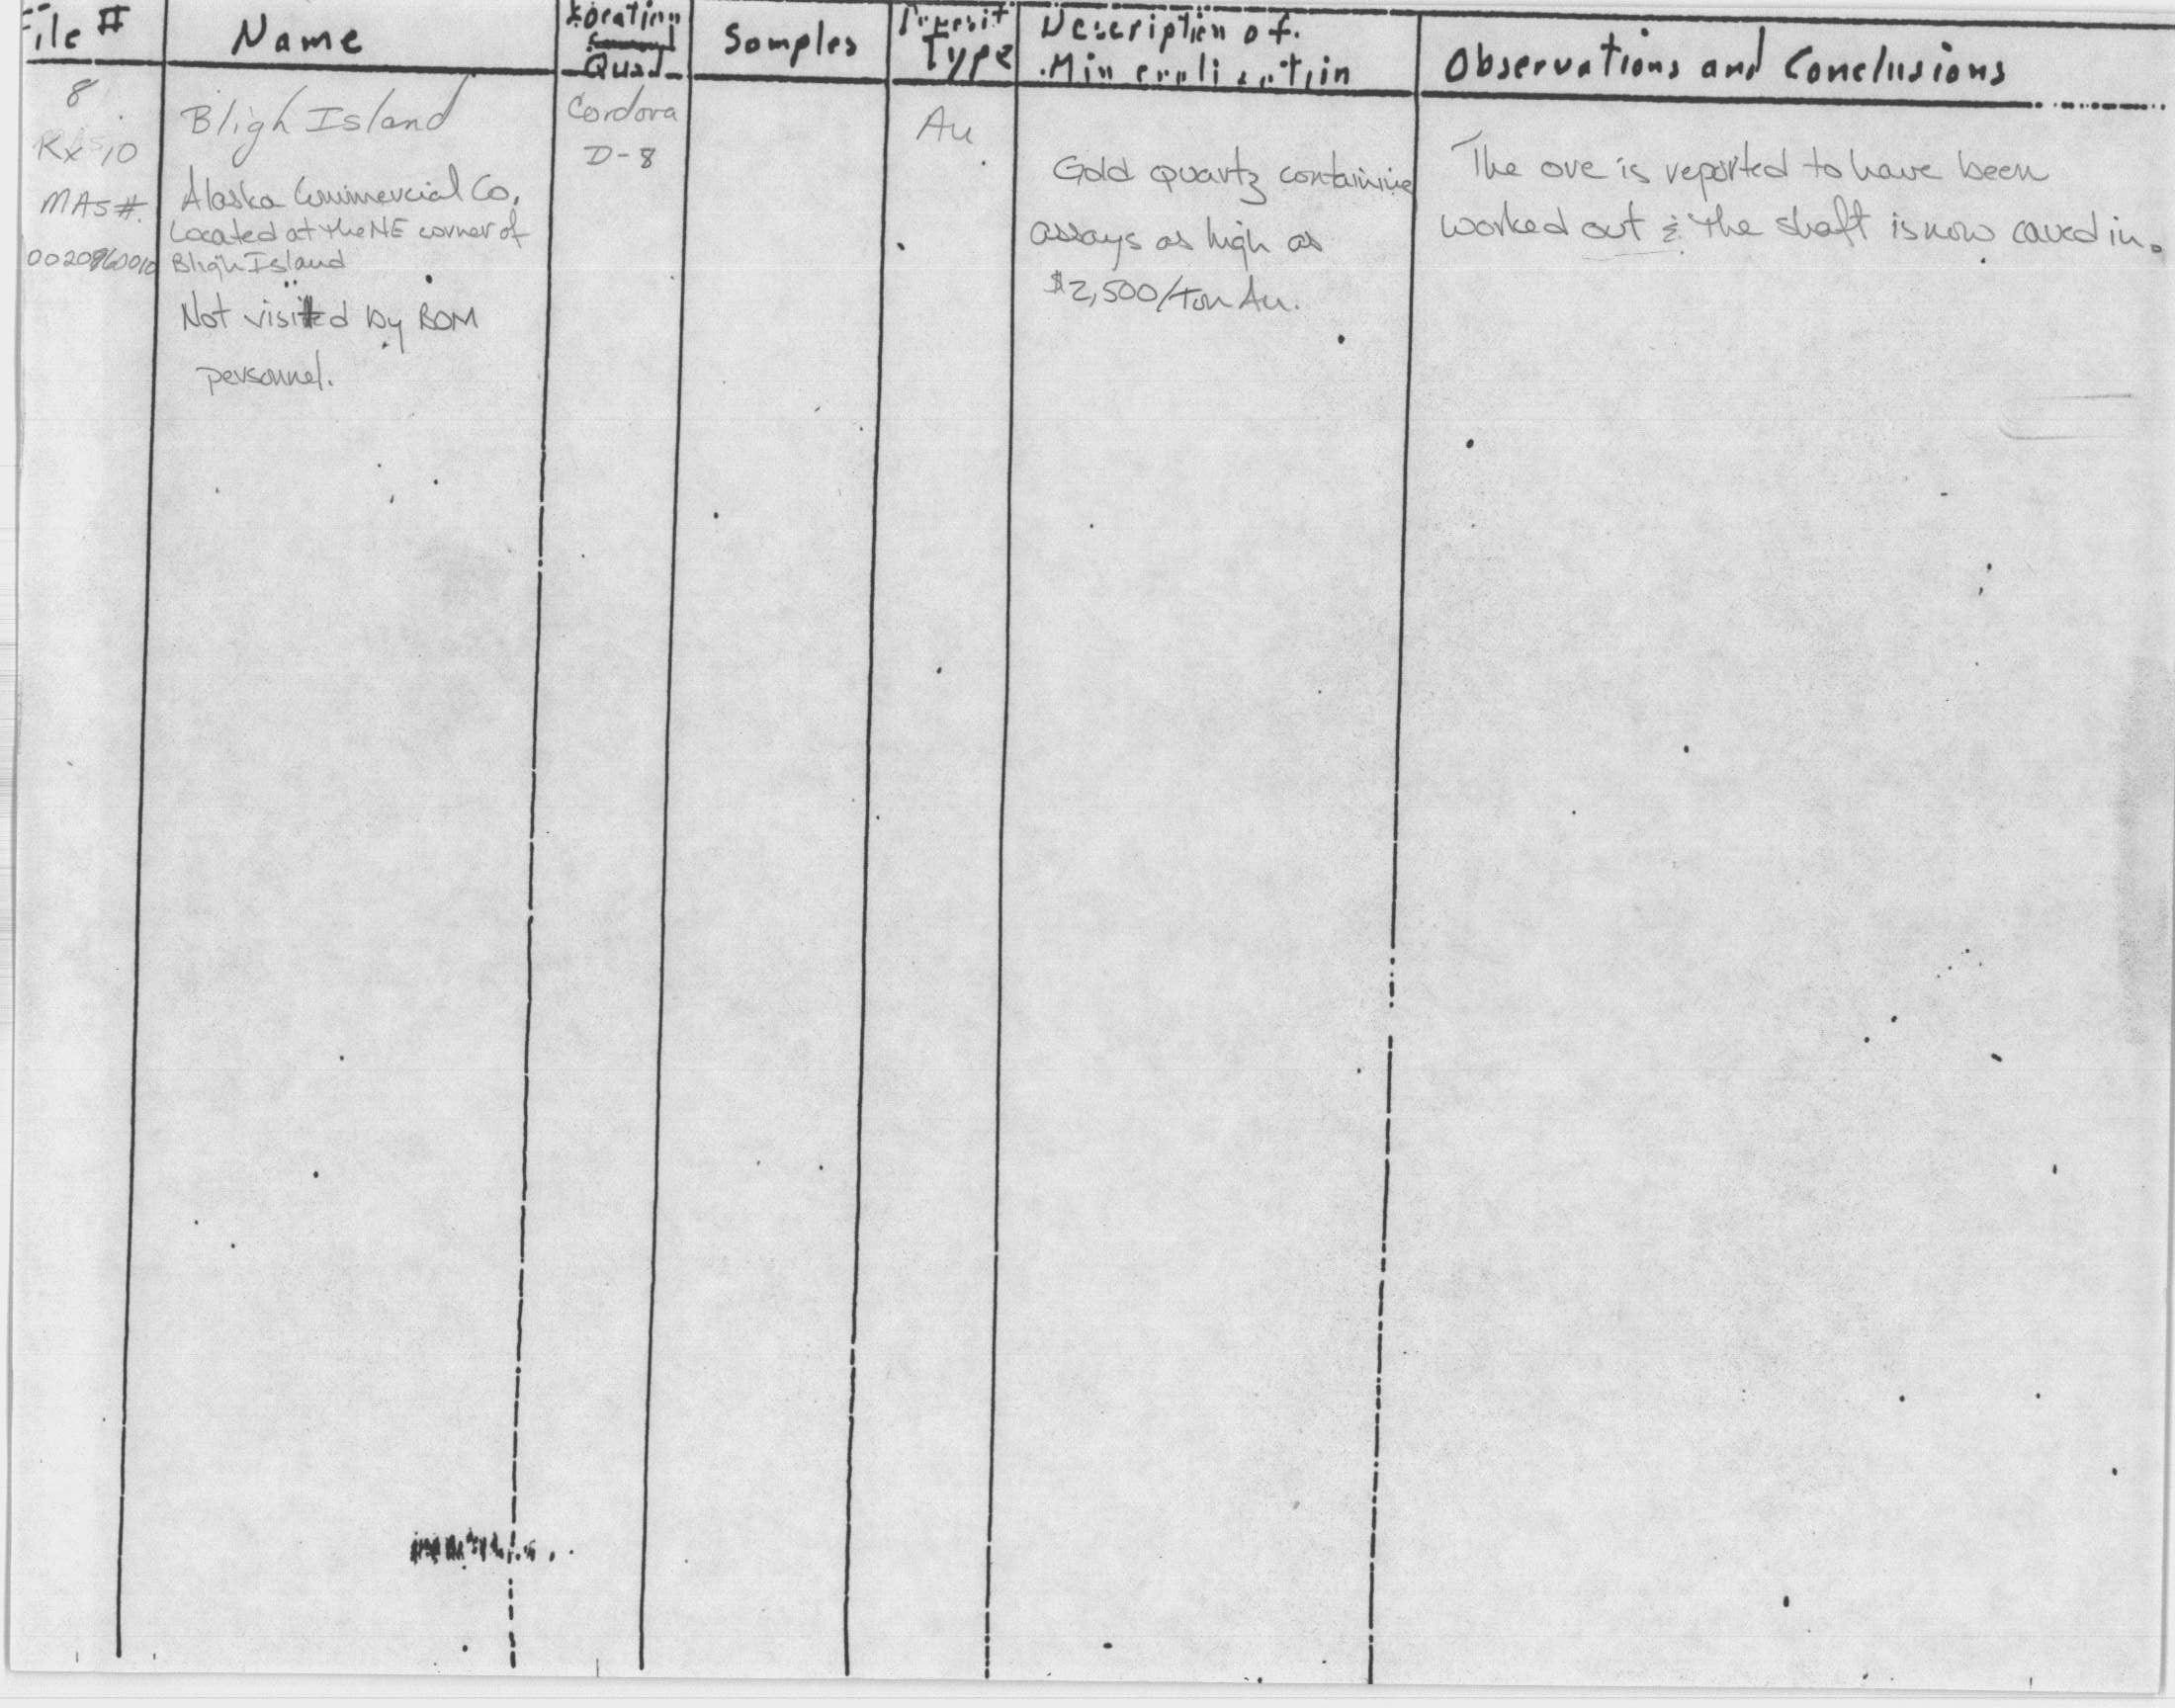 File #
Name
Location
Quad
Samples
Deposit
Type
Description of
Mineralization
Observations and Conclusions
8
Kx 10
MAS#
Bligh Island
Alaska Commercial Co.
Located at the NE corner of
Bligh Island
Not visited by BOM
personnel.
Cordova
D-8
Au
Gold quartz containing
assays as high as
$2,500/ton Au.
The ore is reported to have been
worked out & the shaft is now caved in.